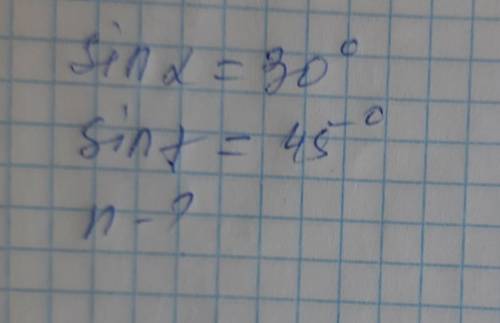 sin α = 30°
sin γ = 45°
n - ?